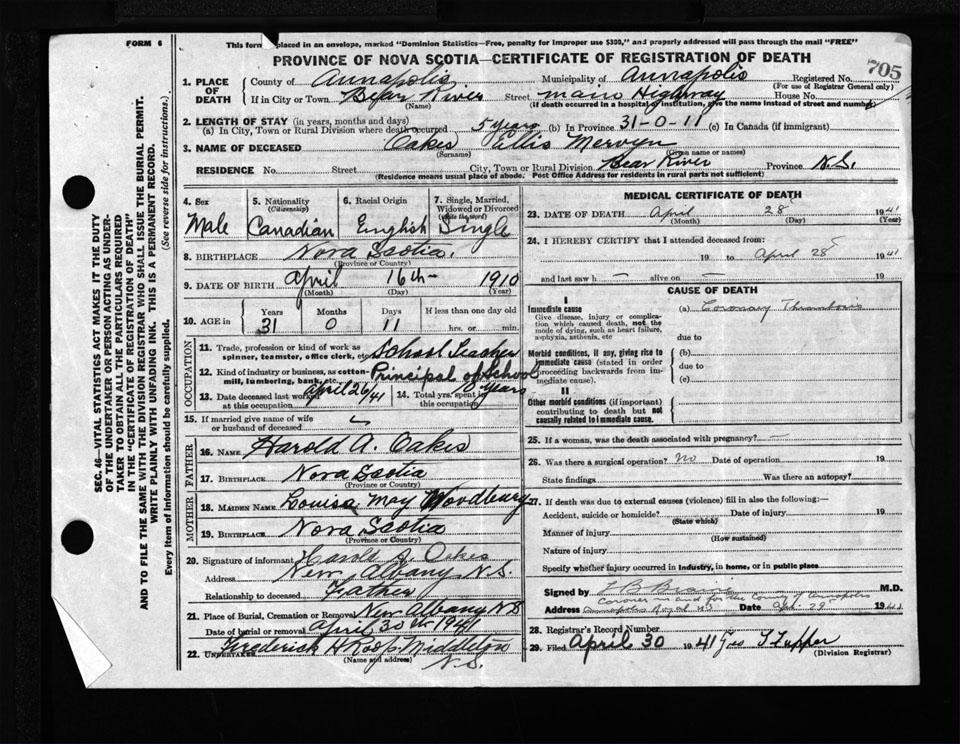 FORM 6
This form placed in an envelope, marked "Dominion Statistics—Free, penalty for improper use $300," and properly addressed will pass through the mail "FREE"
PROVINCE OF NOVA SCOTIA—CERTIFICATE OF REGISTRATION OF DEATH
705
1. PLACE OF DEATH
County of Annapolis Municipality of Annapolis Registered No.
(For use of Registrar General only)
If in City or Town Bear River Street Main Highway House No.
(Name) (If death occurred in a hospital or institution, give the name instead of street and number)
2. LENGTH OF STAY (in years, months and days)
(a) In City, Town or Rural Division where death occurred 5 years (b) In Province 31-0-11 (c) In Canada (if immigrant)
3. NAME OF DECEASED Oakes Ellis Mervyn
(Surname) (Given name or names)
RESIDENCE No. Street City, Town or Rural Division Bear River Province N.S.
(Residence means usual place of abode. Post Office Address for residents in rural parts not sufficient)
4. Sex
Male
5. Nationality
(Citizenship)
Canadian
6. Racial Origin
English
7. Single, Married, Widowed or Divorced
(write the word)
Single
8. BIRTHPLACE Nova Scotia.
(Province or Country)
9. DATE OF BIRTH April 16th 1910
(Month) (Day) (Year)
10. AGE in Years Months Days If less than one day old
31 0 11 hrs. or min.
OCCUPATION
11. Trade, profession or kind of work as spinner, teamster, office clerk, etc. School Teacher
12. Kind of industry or business, as cotton-mill, lumbering, bank, etc. Principal of School
13. Date deceased last worked at this occupation April 26/41
14. Total yrs. spent in this occupation years
15. If married give name of wife or husband of deceased
FATHER
16. NAME Harold A. Oakes
17. BIRTHPLACE Nova Scotia
(Province or Country)
MOTHER
18. MAIDEN NAME Louisa May Woodbury
19. BIRTHPLACE Nova Scotia
(Province or Country)
20. Signature of informant Harold A. Oakes
Address New Albany N.S.
Relationship to deceased Father
21. Place of Burial, Cremation or Removal New Albany NS
Date of burial or removal April 30th 1941
22. UNDERTAKER Frederick H Roop. Middleton
(Name and address) N.S.
MEDICAL CERTIFICATE OF DEATH
23. DATE OF DEATH April 28 1941
(Month) (Day) (Year)
24. I HEREBY CERTIFY that I attended deceased from:
19 to April 28 1941
and last saw h — alive on — 19
CAUSE OF DEATH
I
Immediate cause
Give disease, injury or complication which caused death, not the mode of dying, such as heart failure, asphyxia, asthenia, etc
(a) Coronary Thrombosis
due to
Morbid conditions, if any, giving rise to immediate cause (stated in order proceeding backwards from immediate cause).
(b)
due to
(c)
II
Other morbid conditions (if important) contributing to death but not causally related to immediate cause.
25. If a woman, was the death associated with pregnancy? —
26. Was there a surgical operation? No Date of operation 19
State findings Was there an autopsy?
27. If death was due to external causes (violence) fill in also the following:—
Accident, suicide or homicide? Date of injury 19
(State which)
Manner of injury
(How sustained)
Nature of injury
Specify whether injury occurred in industry, in home, or in public place
Signed by M.D.
Coroner in and for the County of Annapolis
Address Annapolis Royal NS Date Apr. 29 1941
28. Registrar's Record Number
29. Filed April 30 1941 Geo Tupper
(Division Registrar)
SEC. 46—VITAL STATISTICS ACT MAKES IT THE DUTY
OF THE UNDERTAKER OR PERSON ACTING AS UNDER-
TAKER TO OBTAIN ALL THE PARTICULARS REQUIRED
IN THE "CERTIFICATE OF REGISTRATION OF DEATH"
AND TO FILE THE SAME WITH THE DIVISION REGISTRAR WHO SHALL ISSUE THE BURIAL PERMIT.
WRITE PLAINLY WITH UNFADING INK. THIS IS A PERMANENT RECORD.
Every item of information should be carefully supplied. (See reverse side for instructions.)